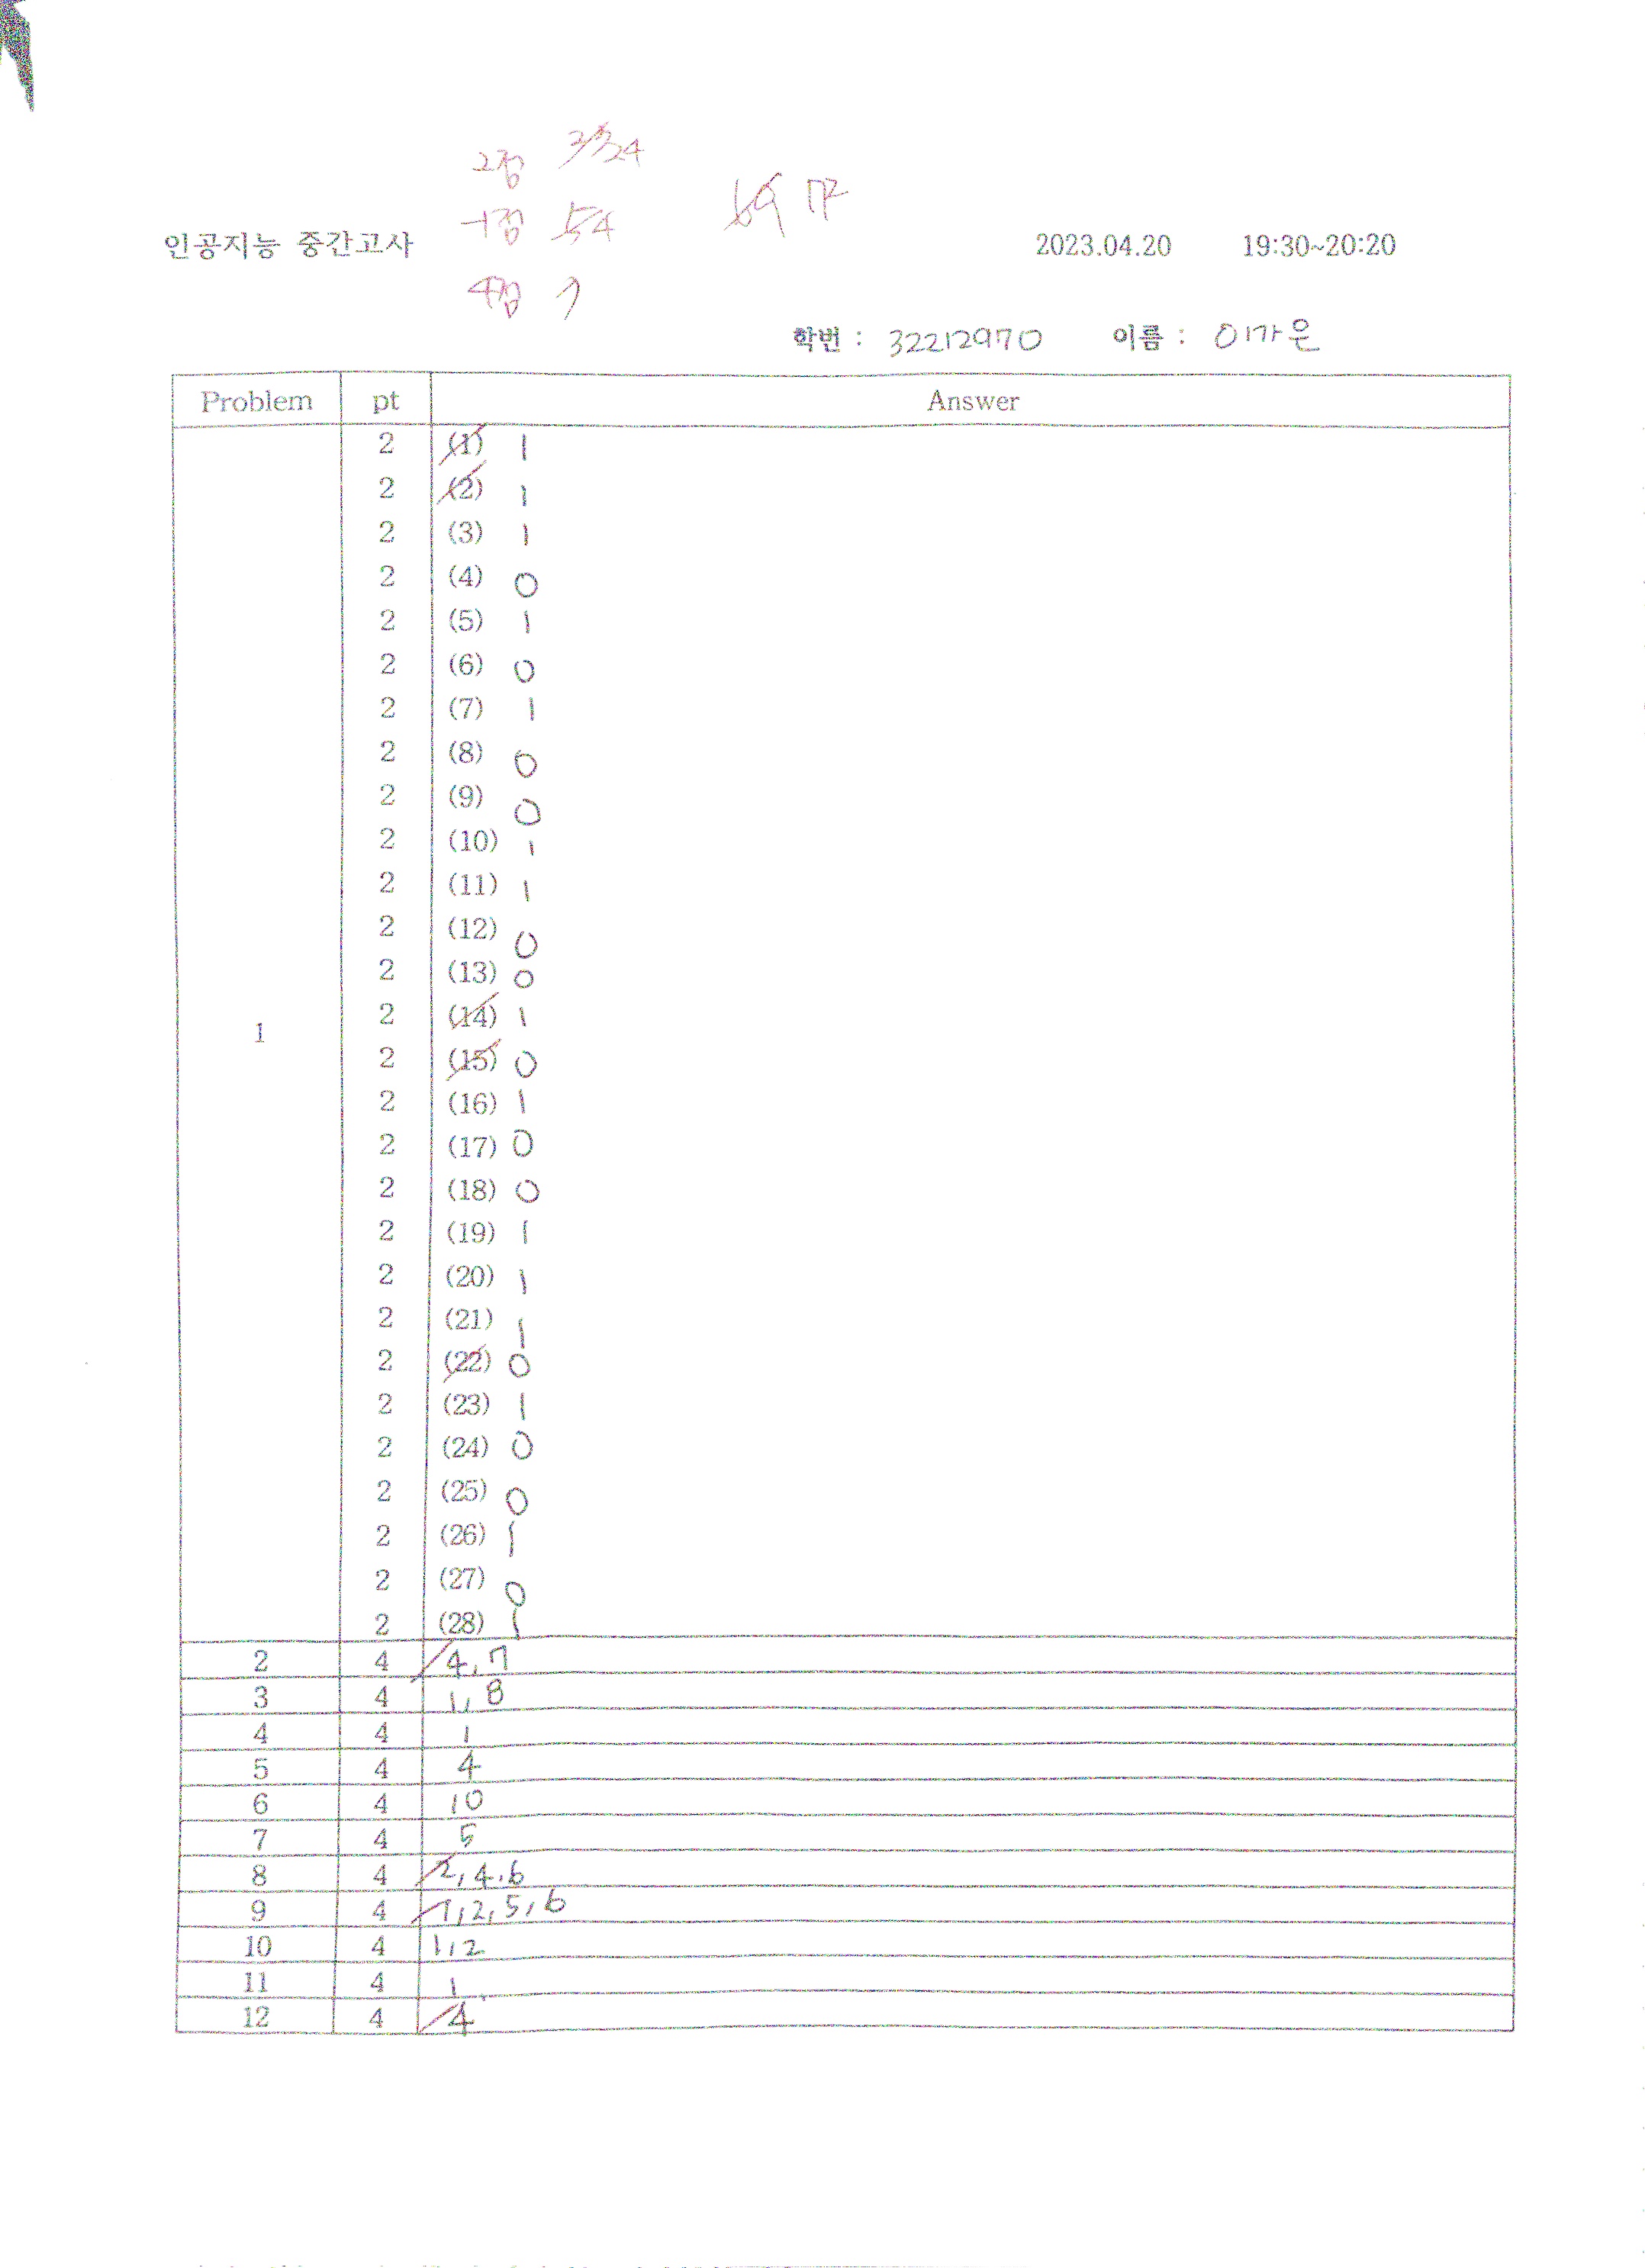 2점 24
-1점 4
4점 7
인공지능 중간고사 2023.04.20 19:30~20:20
학번 : 32212970 이름 : 이가은
Problem pt Answer
1
2 (1) 1
2 (2) 1
2 (3) 1
2 (4) 0
2 (5) 1
2 (6) 0
2 (7) 1
2 (8) 0
2 (9) 0
2 (10) 1
2 (11) 1
2 (12) 0
2 (13) 0
2 (14) 1
2 (15) 0
2 (16) 1
2 (17) 0
2 (18) 0
2 (19) 1
2 (20) 1
2 (21) 1
2 (22) 0
2 (23) 1
2 (24) 0
2 (25) 0
2 (26) 1
2 (27) 0
2 (28) 1
2 4 4, 7
3 4 1, 8
4 4 1
5 4 4
6 4 10
7 4 5
8 4 2, 4, 6
9 4 1, 2, 5, 6
10 4 1, 2
11 4 1
12 4 4